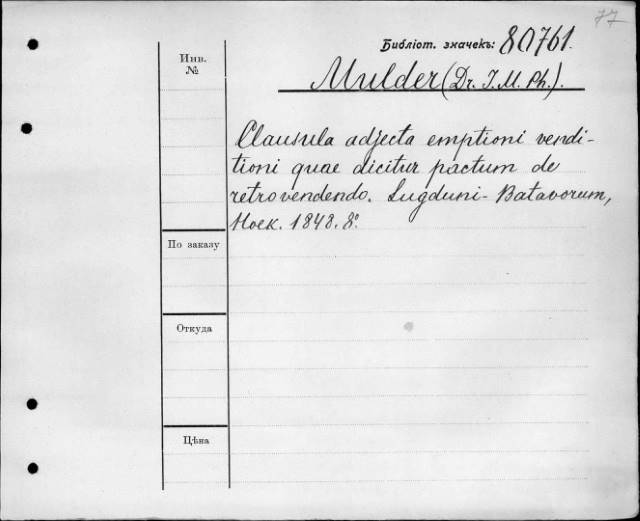 77
Библіот. значекъ: 80761.
Инв.
№
Mulder (Dr. I. M. Ph.).
Clausula adjecta emptioni vendi-
tioni quae dicitur pactum de
retrovendendo. Lugduni-Batavorum,
Hoek. 1848. 8º.
По заказу
Откуда
Цѣна